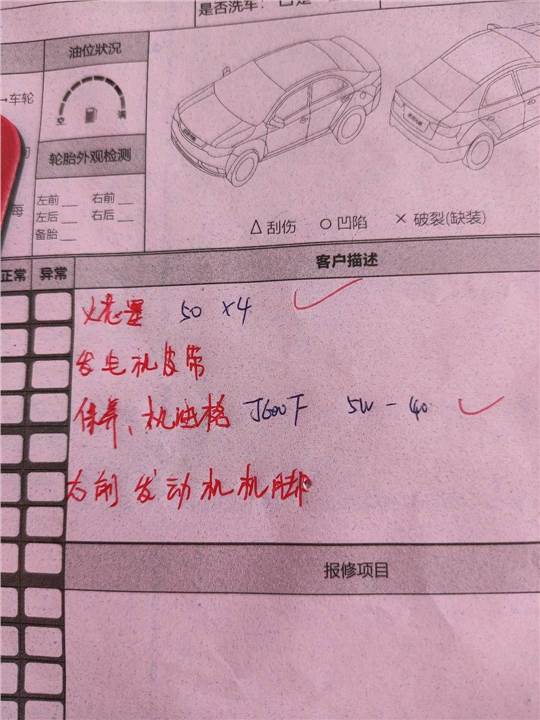 是否洗车：□是
油位狀況
车轮
空 满
轮胎外观检测
左前__ 右前__
左后__ 右后__
每
备胎__
△刮伤 ○凹陷 ×破裂(缺装)
正常 异常 客户描述
火花塞 50 X4
发电机皮带
保养、机油格 J600F 5W-40
右前发动机机脚
报修项目